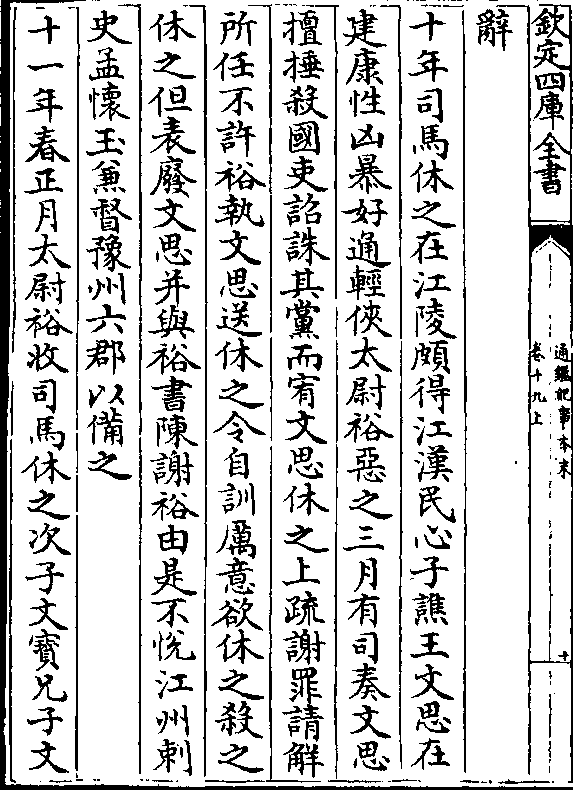 欽定四庫全書
通鑑紀事本末
卷十九上
十
辭
十年司馬休之在江陵頗得江漢民心子譙王文思在
建康性凶暴好通輕俠太尉裕惡之三月有司奏文思
擅捶殺國吏詔誅其黨而宥文思休之上疏謝罪請解
所任不許裕執文思送休之令自訓厲意欲休之殺之
休之但表廢文思并與裕書陳謝裕由是不悅江州刺
史孟懷玉兼督豫州六郡以備之
十一年春正月太尉裕收司馬休之次子文寶兄子文